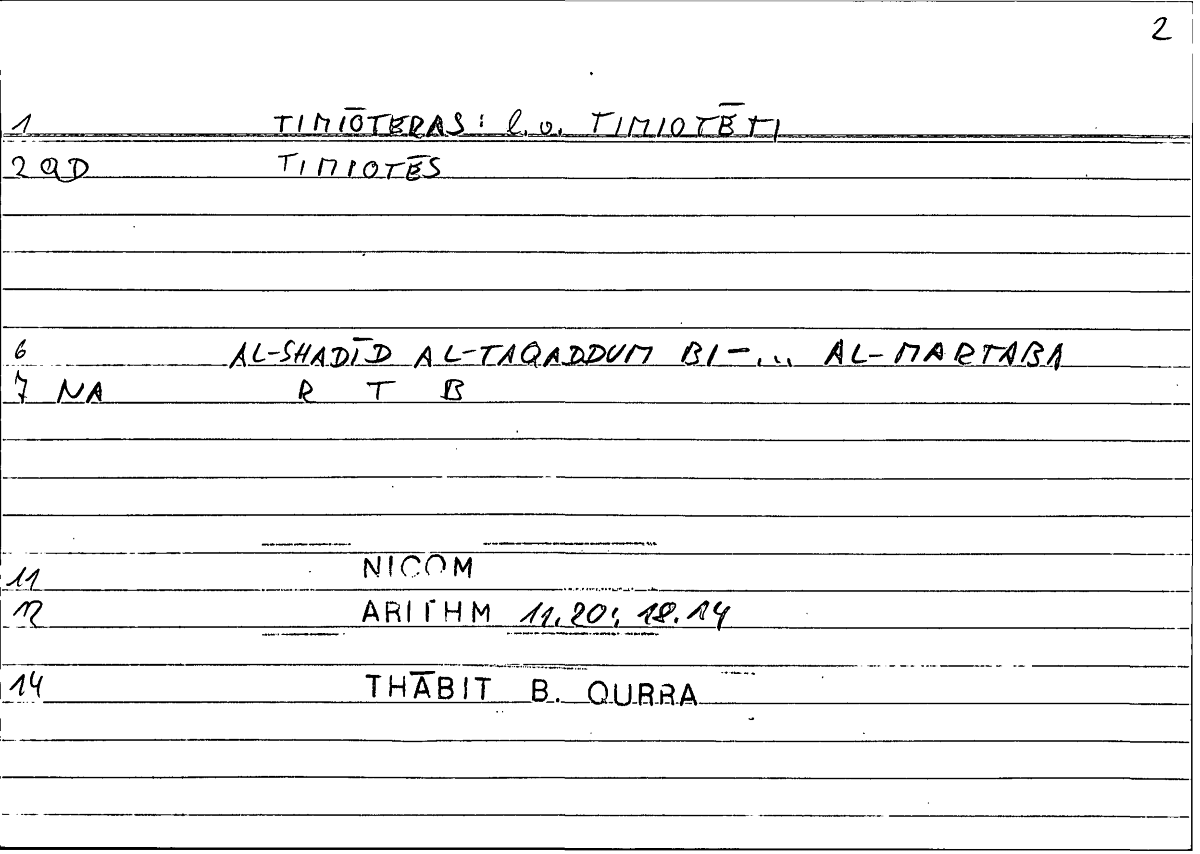 2
1 TIMIŌTERAS: l.v. TIMIOTĒTI
2 QD TIMIOTĒS
6 AL-SHADĪD AL-TAQADDUM BI-... AL-MARTABA
7 NA R T B
11 NICOM
12 ARITHM 11.20: 18.14
14 THĀBIT B. QURRA